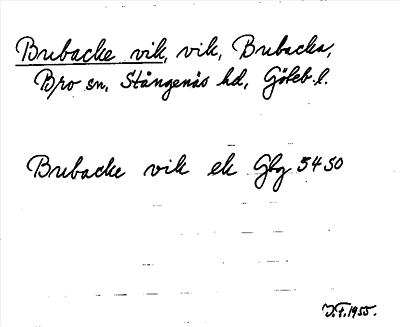 Brubacke vik, vik, Brubacka,
Bro sn, Stångenäs hd, Göteb. l.
Brubacke vik ek Gbg 5450
V.F. 1955.